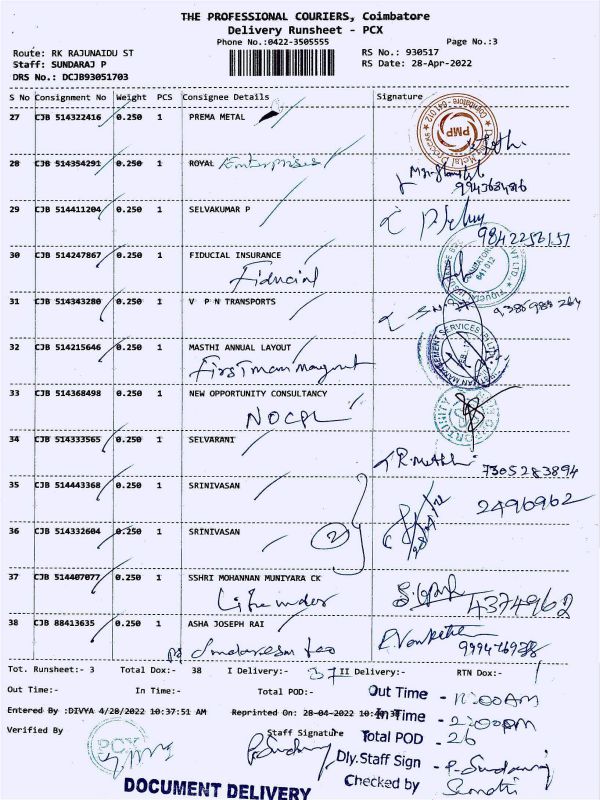 THE PROFESSIONAL COURIERS, Coimbatore
Delivery Runsheet - PCX
Phone No.:0422-3505555
Page No.:3
Route: RK RAJUNAIDU ST
RS No.: 930517
Staff: SUNDARAJ P
RS Date: 28-Apr-2022
DRS No.: DCJB93051703
S No Consignment No Weight PCS Consignee Details Signature
27 CJB 514322416 0.250 1 PREMA METAL
PMP
28 CJB 514354291 0.250 1 ROYAL Enterprises
29 CJB 514411204 0.250 1 SELVAKUMAR P
9842256157
30 CJB 514247867 0.250 1 FIDUCIAL INSURANCE
Fiducial
31 CJB 514343280 0.250 1 V P N TRANSPORTS
32 CJB 514215646 0.250 1 MASTHI ANNUAL LAYOUT
33 CJB 514368498 0.250 1 NEW OPPORTUNITY CONSULTANCY
NOCPL
34 CJB 514333565 0.250 1 SELVARANI
7305283894
35 CJB 514443368 0.250 1 SRINIVASAN
2496962
36 CJB 514332604 0.250 1 SRINIVASAN
2
37 CJB 514407077 0.250 1 SSHRI MOHANNAN MUNIYARA CK
4374962
38 CJB 88413635 0.250 1 ASHA JOSEPH RAI
Tot. Runsheet:- 3 Total Dox:- 38 I Delivery:- 37 II Delivery:- RTN Dox:- 1
Out Time:- In Time:- Total POD:-
Out Time - 11:00AM
Entered By :DIVYA 4/28/2022 10:37:51 AM Reprinted On: 28-04-2022
In Time - 2:00pm
Verified By
Staff Signature
Total POD - 26
PCX
Dly.Staff Sign - P. Sundaraj
Checked by
DOCUMENT DELIVERY